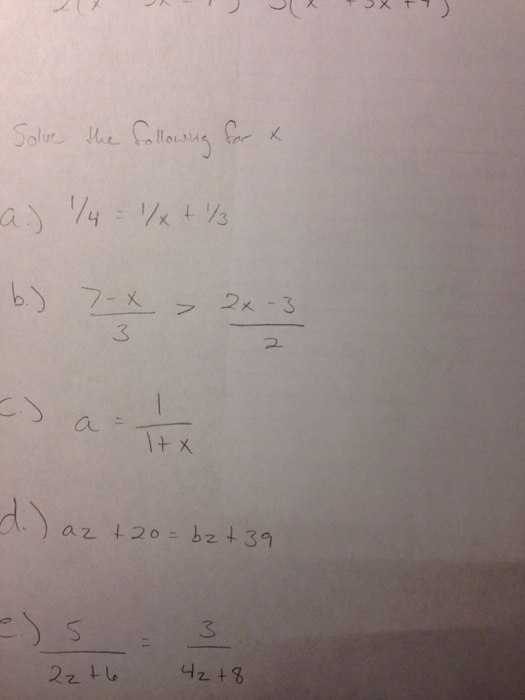 Solve the following for x
a.) 1/4 = 1/x + 1/3
b.) 7-x/3 > 2x-3/2
c.) a = 1/1+x
d.) az + 20 = bz + 39
e.) 5/2z+6 = 3/4z+8